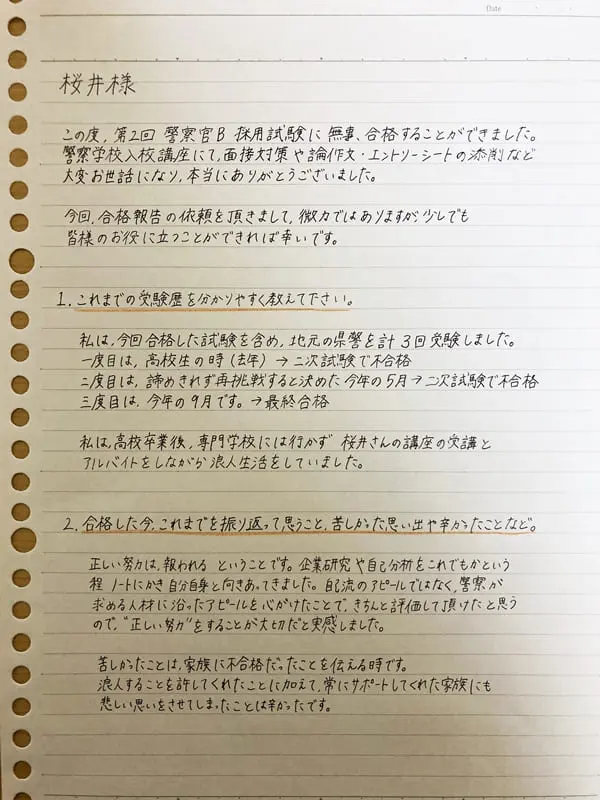 Date
桜井様
この度、第2回 警察官B 採用試験に 無事、合格することができました。
警察学校入校講座にて、面接対策や論作文・エントリーシートの添削など
大変お世話になり、本当にありがとうございました。
今回、合格報告の依頼を頂きまして、微力ではありますが、少しでも
皆様のお役に立つことができれば幸いです。
1. これまでの受験歴を分かりやすく教えて下さい。
私は、今回合格した試験を含め、地元の県警を計3回受験しました。
一度目は、高校生の時(去年)→二次試験で不合格
二度目は、諦めきれず再挑戦すると決めた今年の5月→二次試験で不合格
三度目は、今年の9月です。→最終合格
私は、高校卒業後、専門学校には行かず 桜井さんの講座の受講と
アルバイトをしながら浪人生活をしていました。
2. 合格した今、これまでを振り返って思うこと、苦しかった思い出や辛かったことなど。
正しい努力は、報われる ということです。企業研究や自己分析をこれでもかという
程 ノートにかき自分自身と向きあってきました。自己流のアピールではなく、警察が
求める人材に沿ったアピールを心がけたことで、きちんと評価して頂けたと思う
ので、"正しい努力"をすることが大切だと実感しました。
苦しかったことは、家族に不合格だったことを伝える時です。
浪人することを許してくれたことに加えて、常にサポートしてくれた家族にも
悲しい思いをさせてしまったことは辛かったです。